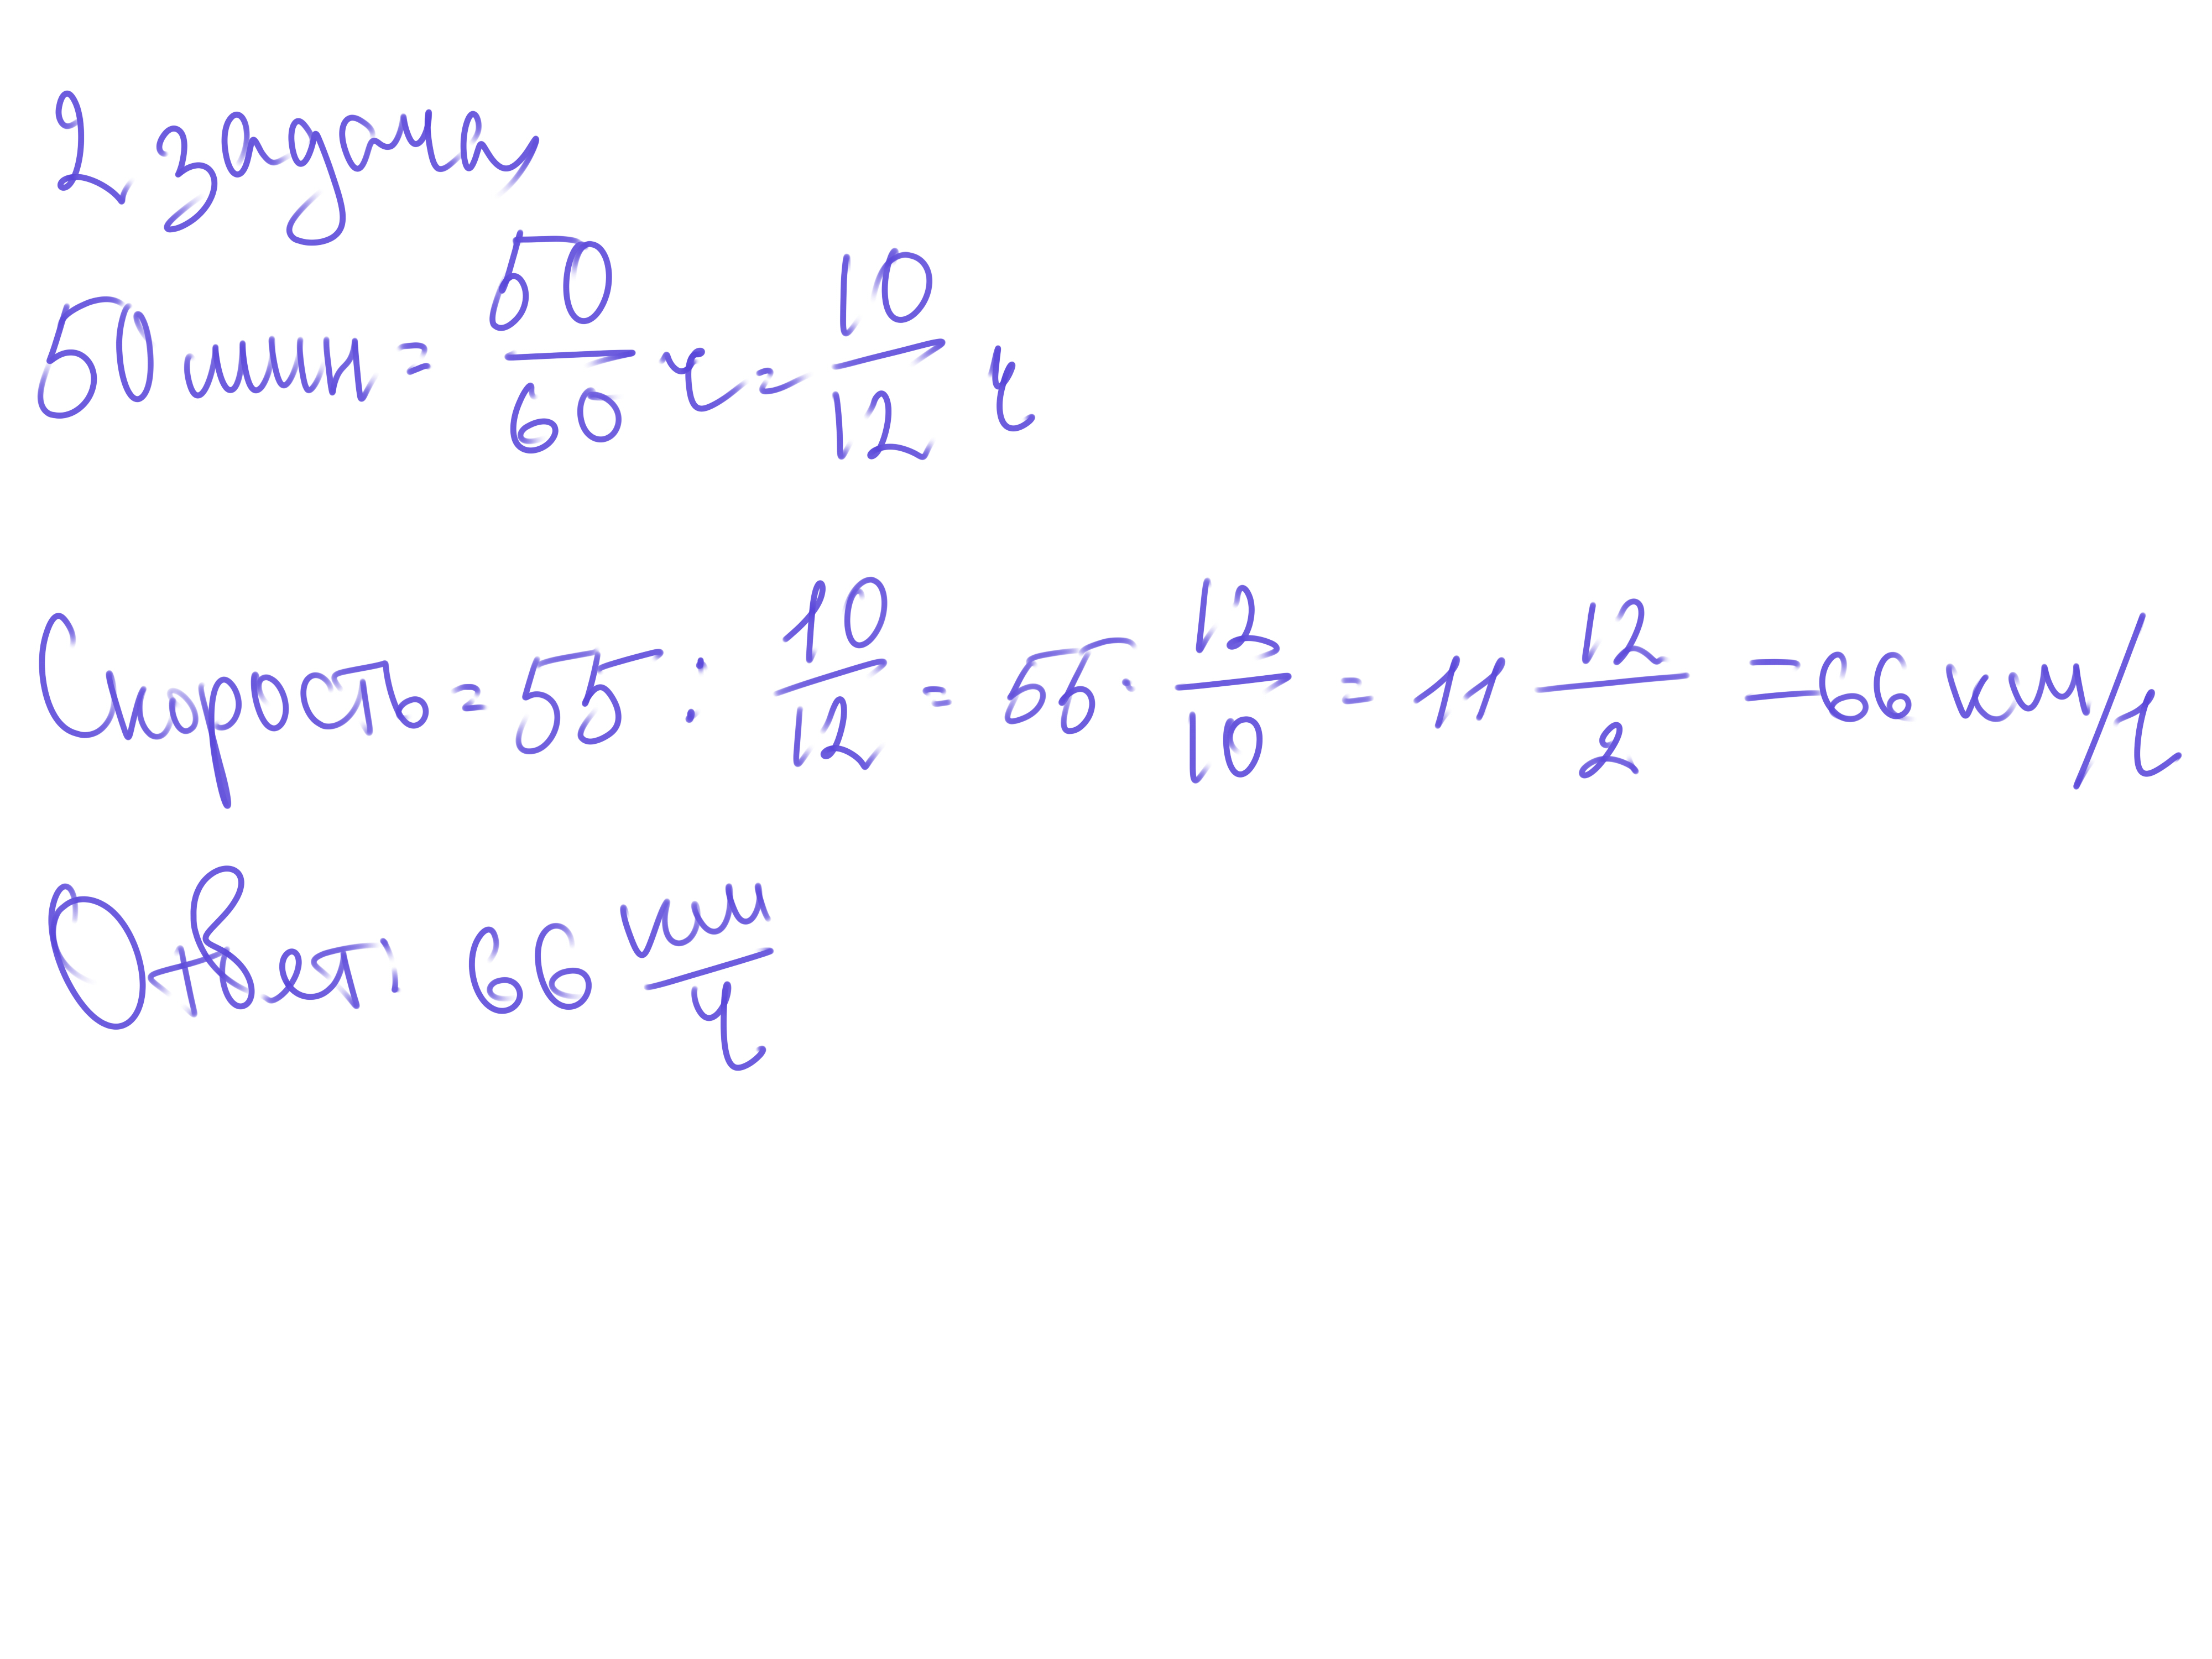 2. задача,
50 мин = 50/60 ч = 10/12 ч
Скорость = 55 : 10/12 = 55 · 12/10 = 11 12/2 = 66 км/ч
Ответ: 66 км/ч